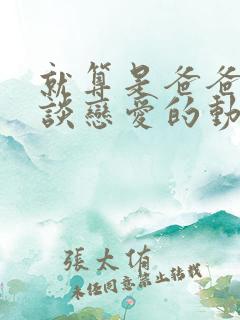 就算是爸爸
談戀愛的動
張太侑
未經同意禁止轉載